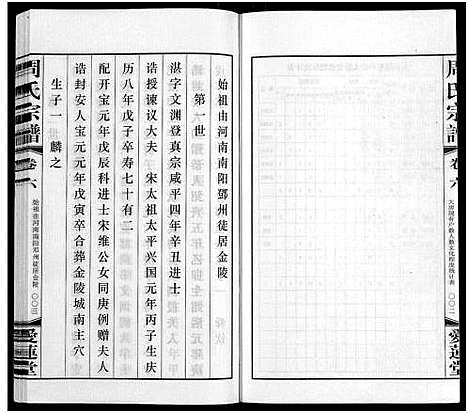 周氏宗譜
卷六
大房现有户数人数文化程度统计表
〇〇二
愛蓮堂
始祖由河南南阳鄧州徒居金陵
第一世
湛字文渊登真宗咸平四年辛丑进士
诰授谏议大夫 宋太祖太平兴国元年丙子生庆
历八年戊子卒寿七十有二
配开宝元年戊辰科进士宋维公女同庚例赠夫人
诰封安人宝元元年戊寅卒合葬金陵城南主穴
生子一 麟之
周氏宗譜
卷六
始祖由河南南阳邓州徒居金陵
〇〇三
愛蓮堂